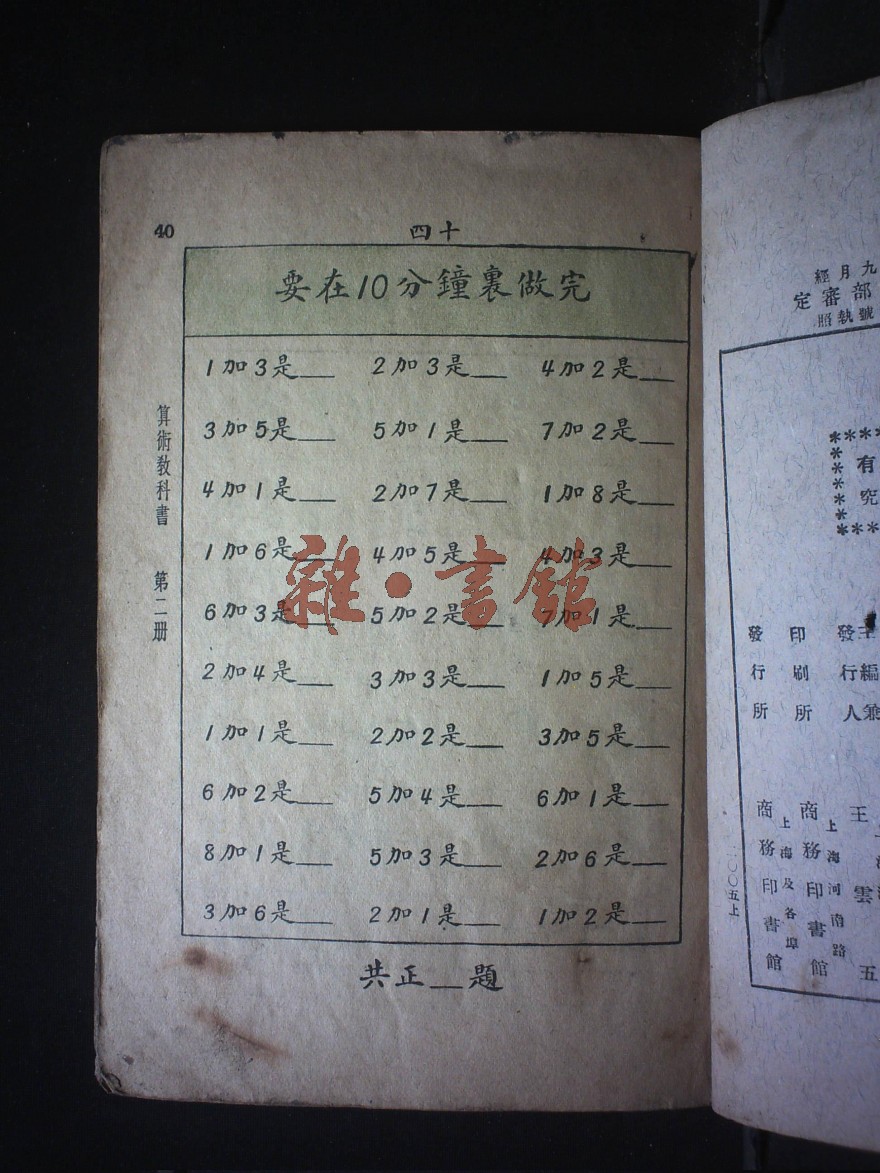 40
四十
要在10分鐘裏做完
1加3是__ 2加3是__ 4加2是__
3加5是__ 5加1是__ 7加2是__
4加1是__ 2加7是__ 1加8是__
1加6是__ 4加5是__ 4加3是__
6加3是__ 5加2是__ 7加1是__
2加4是__ 3加3是__ 1加5是__
1加1是__ 2加2是__ 3加5是__
6加2是__ 5加4是__ 6加1是__
8加1是__ 5加3是__ 2加6是__
3加6是__ 2加1是__ 1加2是__
共正__題
算術教科書 第二册
雜·書館
九月經
部審定
號執照
有
究
主編兼
發行人
王雲五
印刷所
上海河南路
商務印書館
發行所
上海及各埠
商務印書館
一〇〇五上